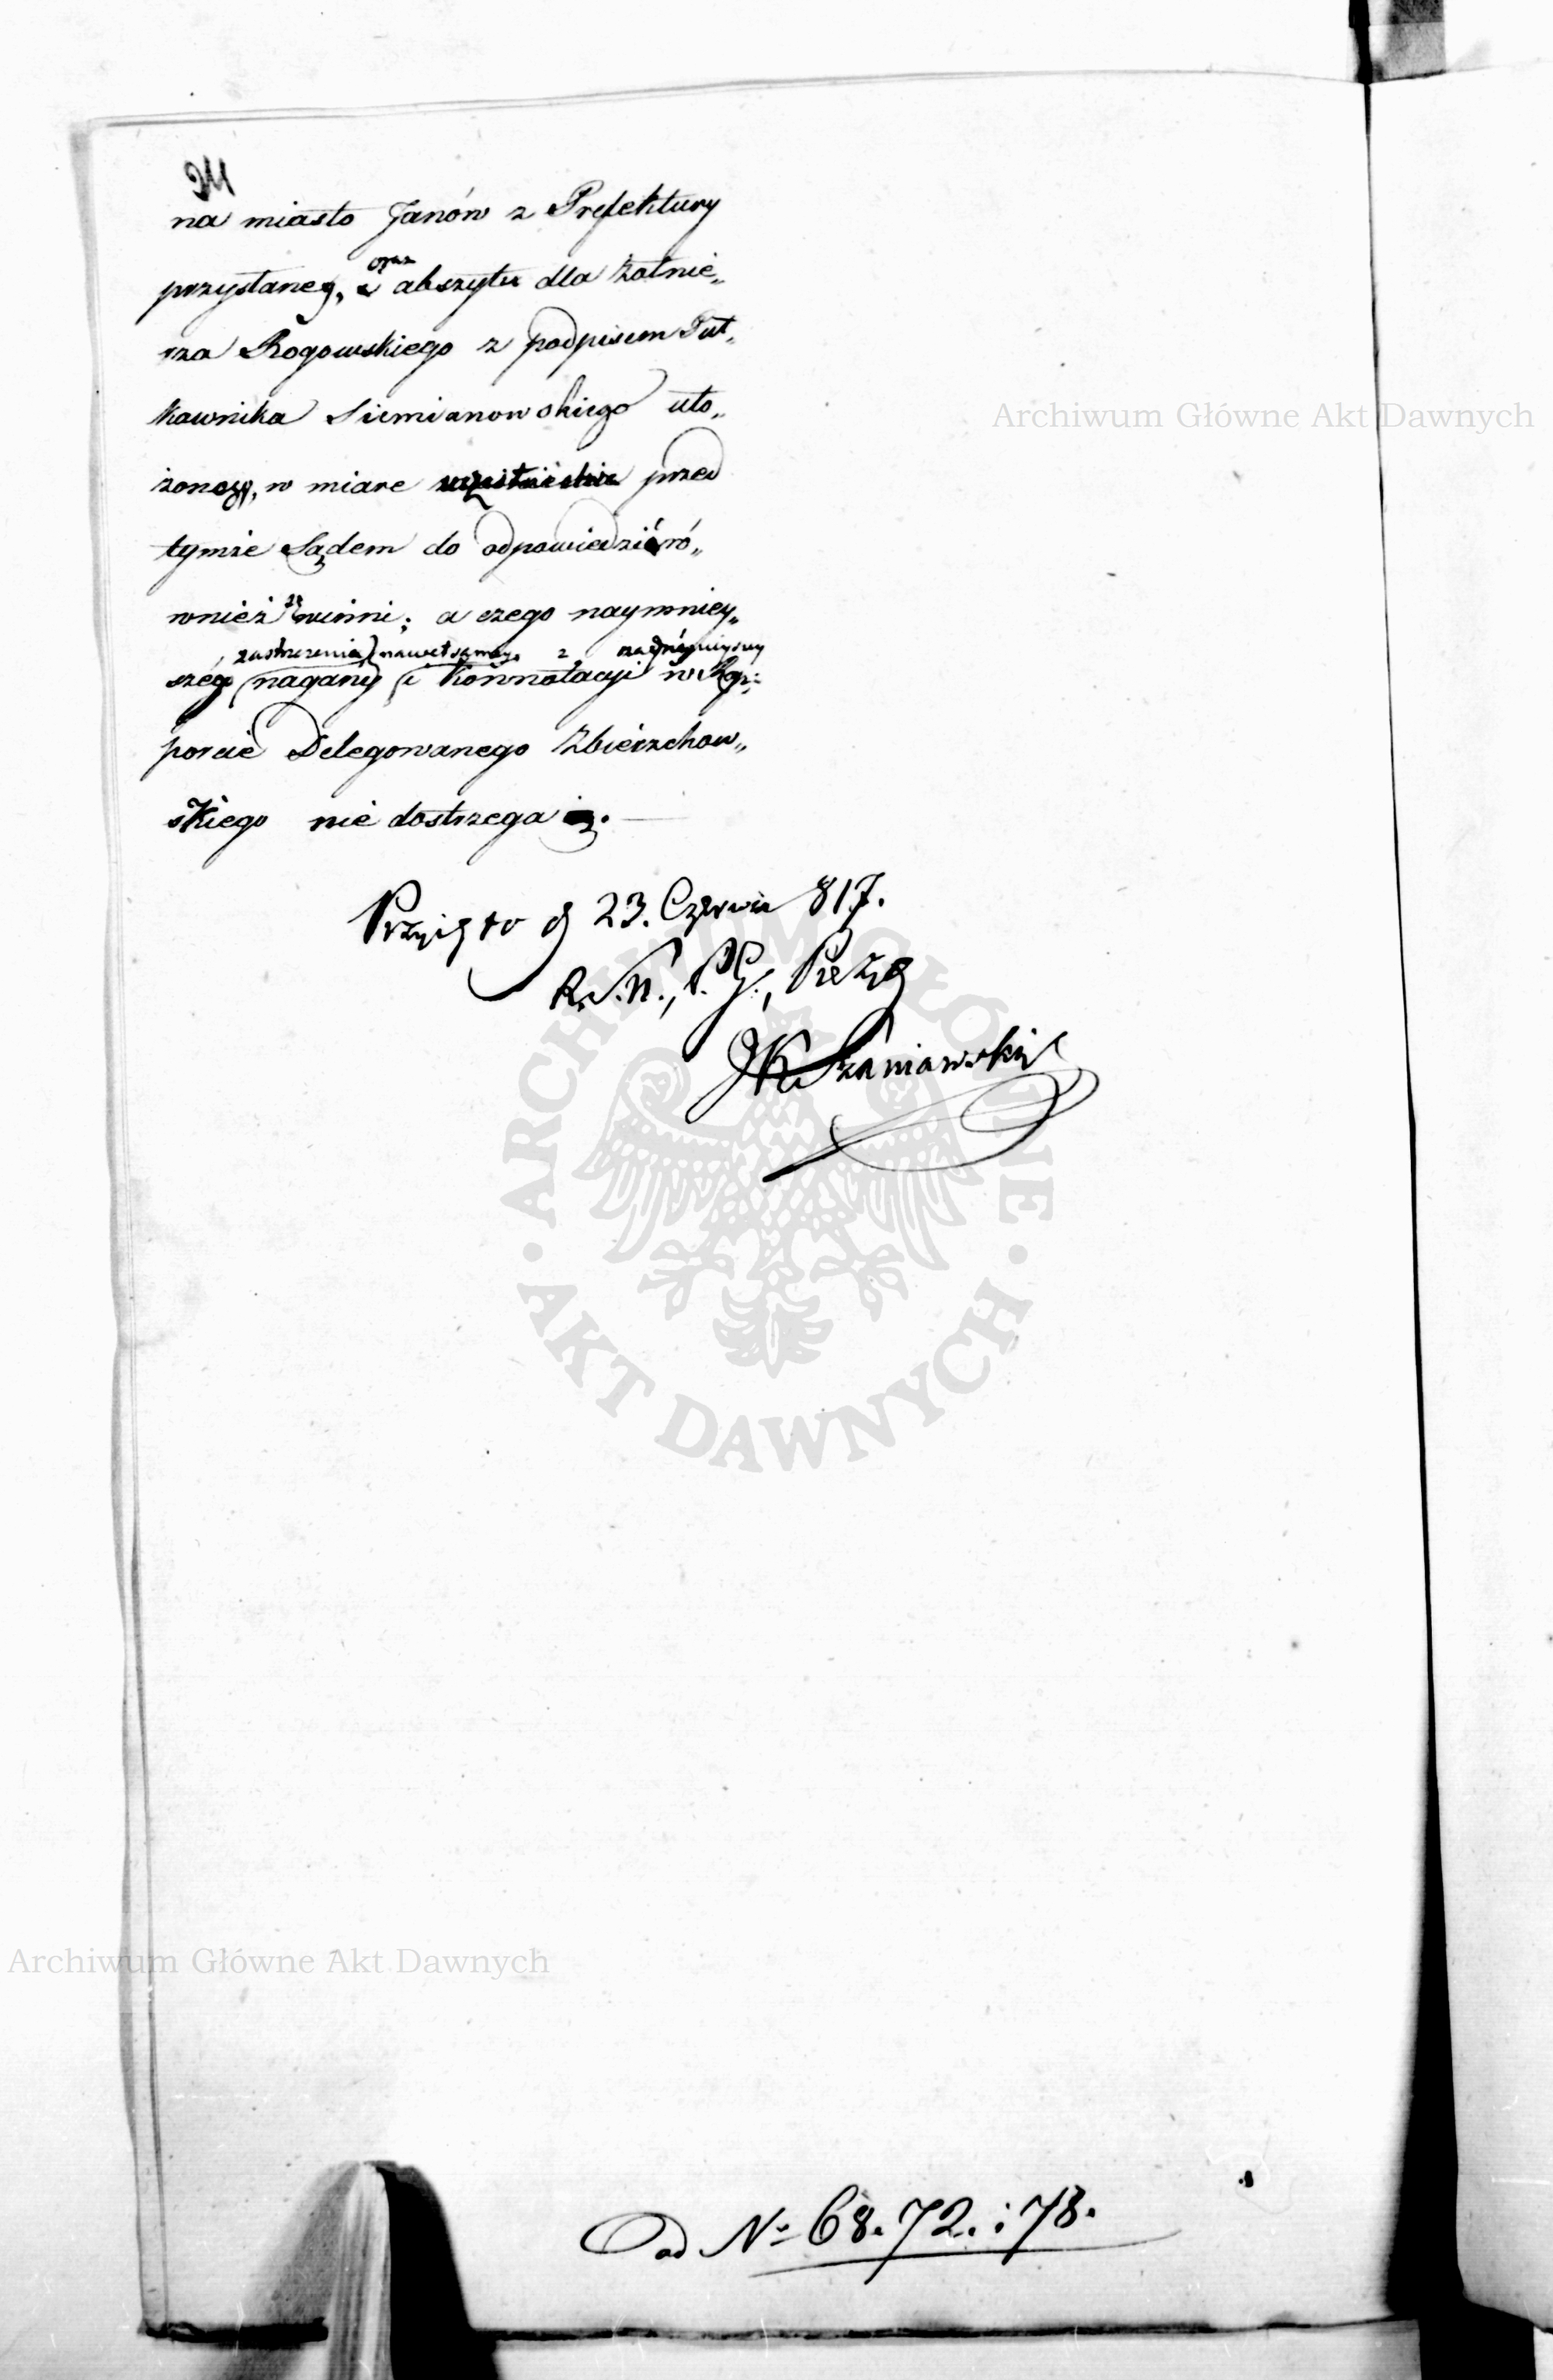 na miasto Janów z Prefektury
oraz
przysłaney, i abszytu dla Żołnie„
rza Rogowskiego z podpisem Puł„
kownika Siemianowskiego uło„
żonego, w miare przed
tymże Sądem do odpowiedzi ró„
wnież są winni; a czego naymniey„
zastrzeżenia nawet samey z
szey nagany i Konnotacyi w Rap„
porcie Delegowanego Zbierzchow„
skiego nie dostrzega
Przyięto d 23. Czerwca 817.
R. S. N., P. G., Prezyd
JK Szaniawski
Archiwum Główne Akt Dawnych
ARCHIWUM GŁÓWNE AKT DAWNYCH
Archiwum Główne Akt Dawnych
ad No 68. 72. i 78.